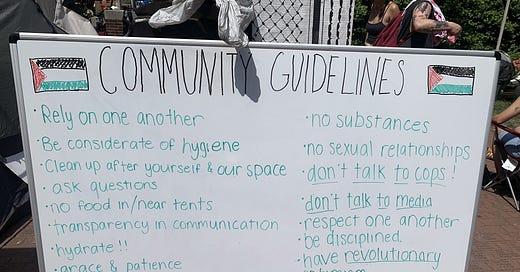 COMMUNITY GUIDELINES
· Rely on one another
· Be considerate of hygiene
· Clean up after yourself & our space
· ask questions
· no food in/near tents
· transparency in communication
· hydrate!!
· grace & patience
· no substances
· no sexual relationships
· don't talk to cops!
· don't talk to media
· respect one another
· be disciplined.
· have revolutionary